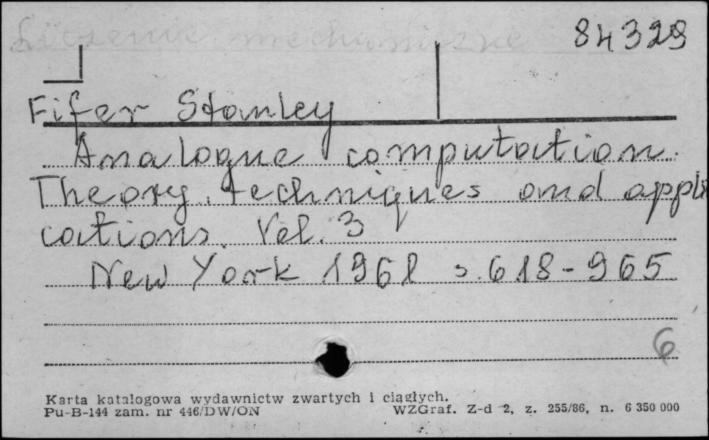 Liczenie mechaniczne 84329
Fifer Stanley
Analogue computation.
Theory, techniques and appli
cations. Vol. 3
New York 1961 s. 618-965
6
Karta katalogowa wydawnictw zwartych i ciągłych.
Pu-B-144 zam. nr 446/DW/ON WZGraf. Z-d 2, z. 255/86, n. 6 350 000